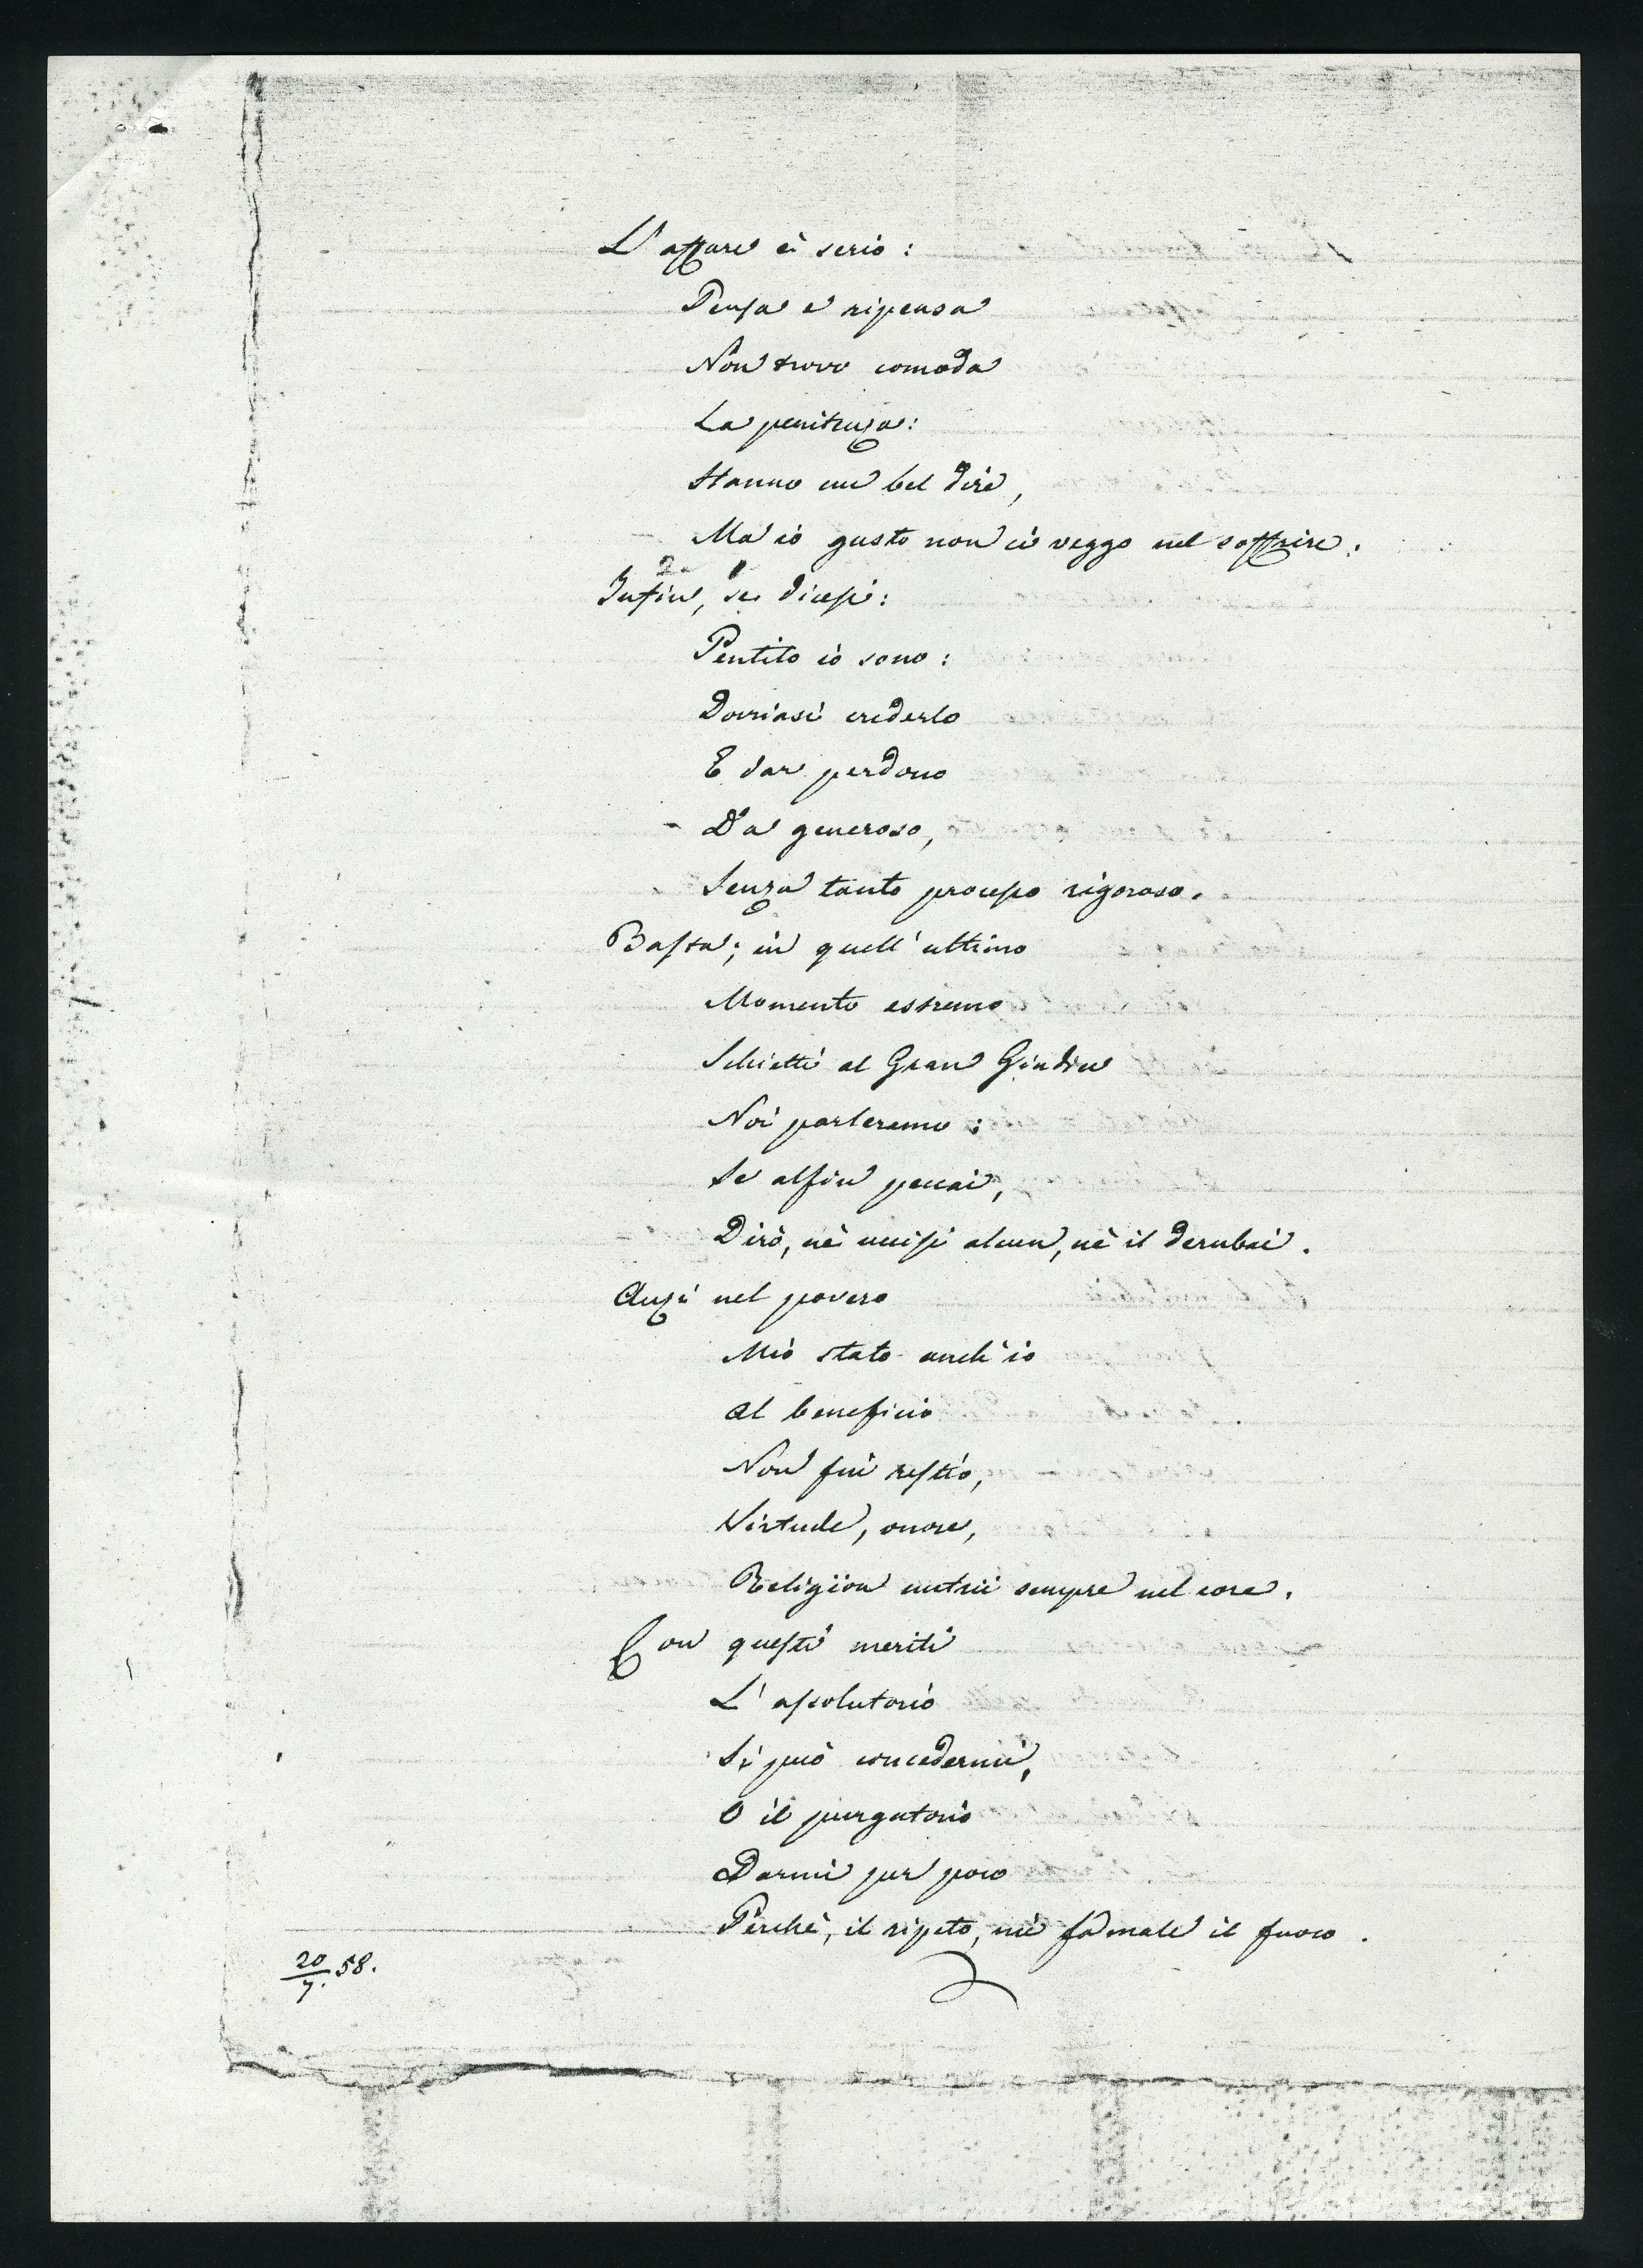 L'affare è serio:
Pensa e ripensa
Non trovo comoda
La penitenza:
Hanno un bel dire,
Ma io gusto non ci veggo nel soffrire.
2 1
Infin, se dicessi:
Pentito io sono:
Dovriasi crederlo
E dar perdono
Da generoso,
Senza tanto processo rigoroso.
Basta; in quell'ultimo
Momento estremo
Schietti al Gran Giudice
Noi parleremo:
Se alfin peccai,
Dirò, nè uccisi alcun, nè il derubai.
Anzi nel povero
Mio stato anch'io
Al beneficio
Non fui restio,
Virtude, onore,
Religion nutrii sempre nel core.
Con questi meriti
L'assolutorio
Si può concedermi,
O il purgatorio
Darmi per poco
Perchè, il ripeto, mi fa male il fuoco.
20/7. 58.